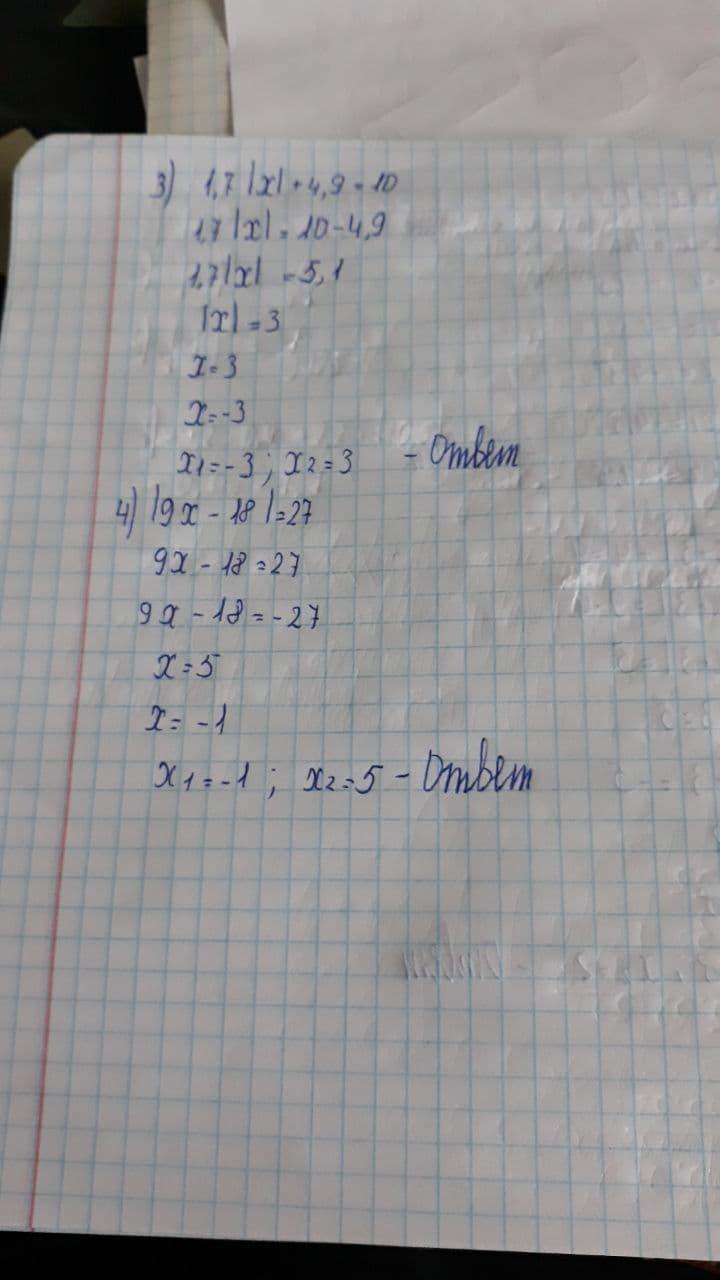 3) 1,7 |x| + 4,9 = 10
1,7 |x| = 10 - 4,9
1,7|x| = 5,1
|x| = 3
x = 3
x = -3
x1 = -3 ; x2 = 3 - Ответ
4) |9x - 18| = 27
9x - 18 = 27
9x - 18 = -27
x = 5
x = -1
x1 = -1 ; x2 = 5 - Ответ